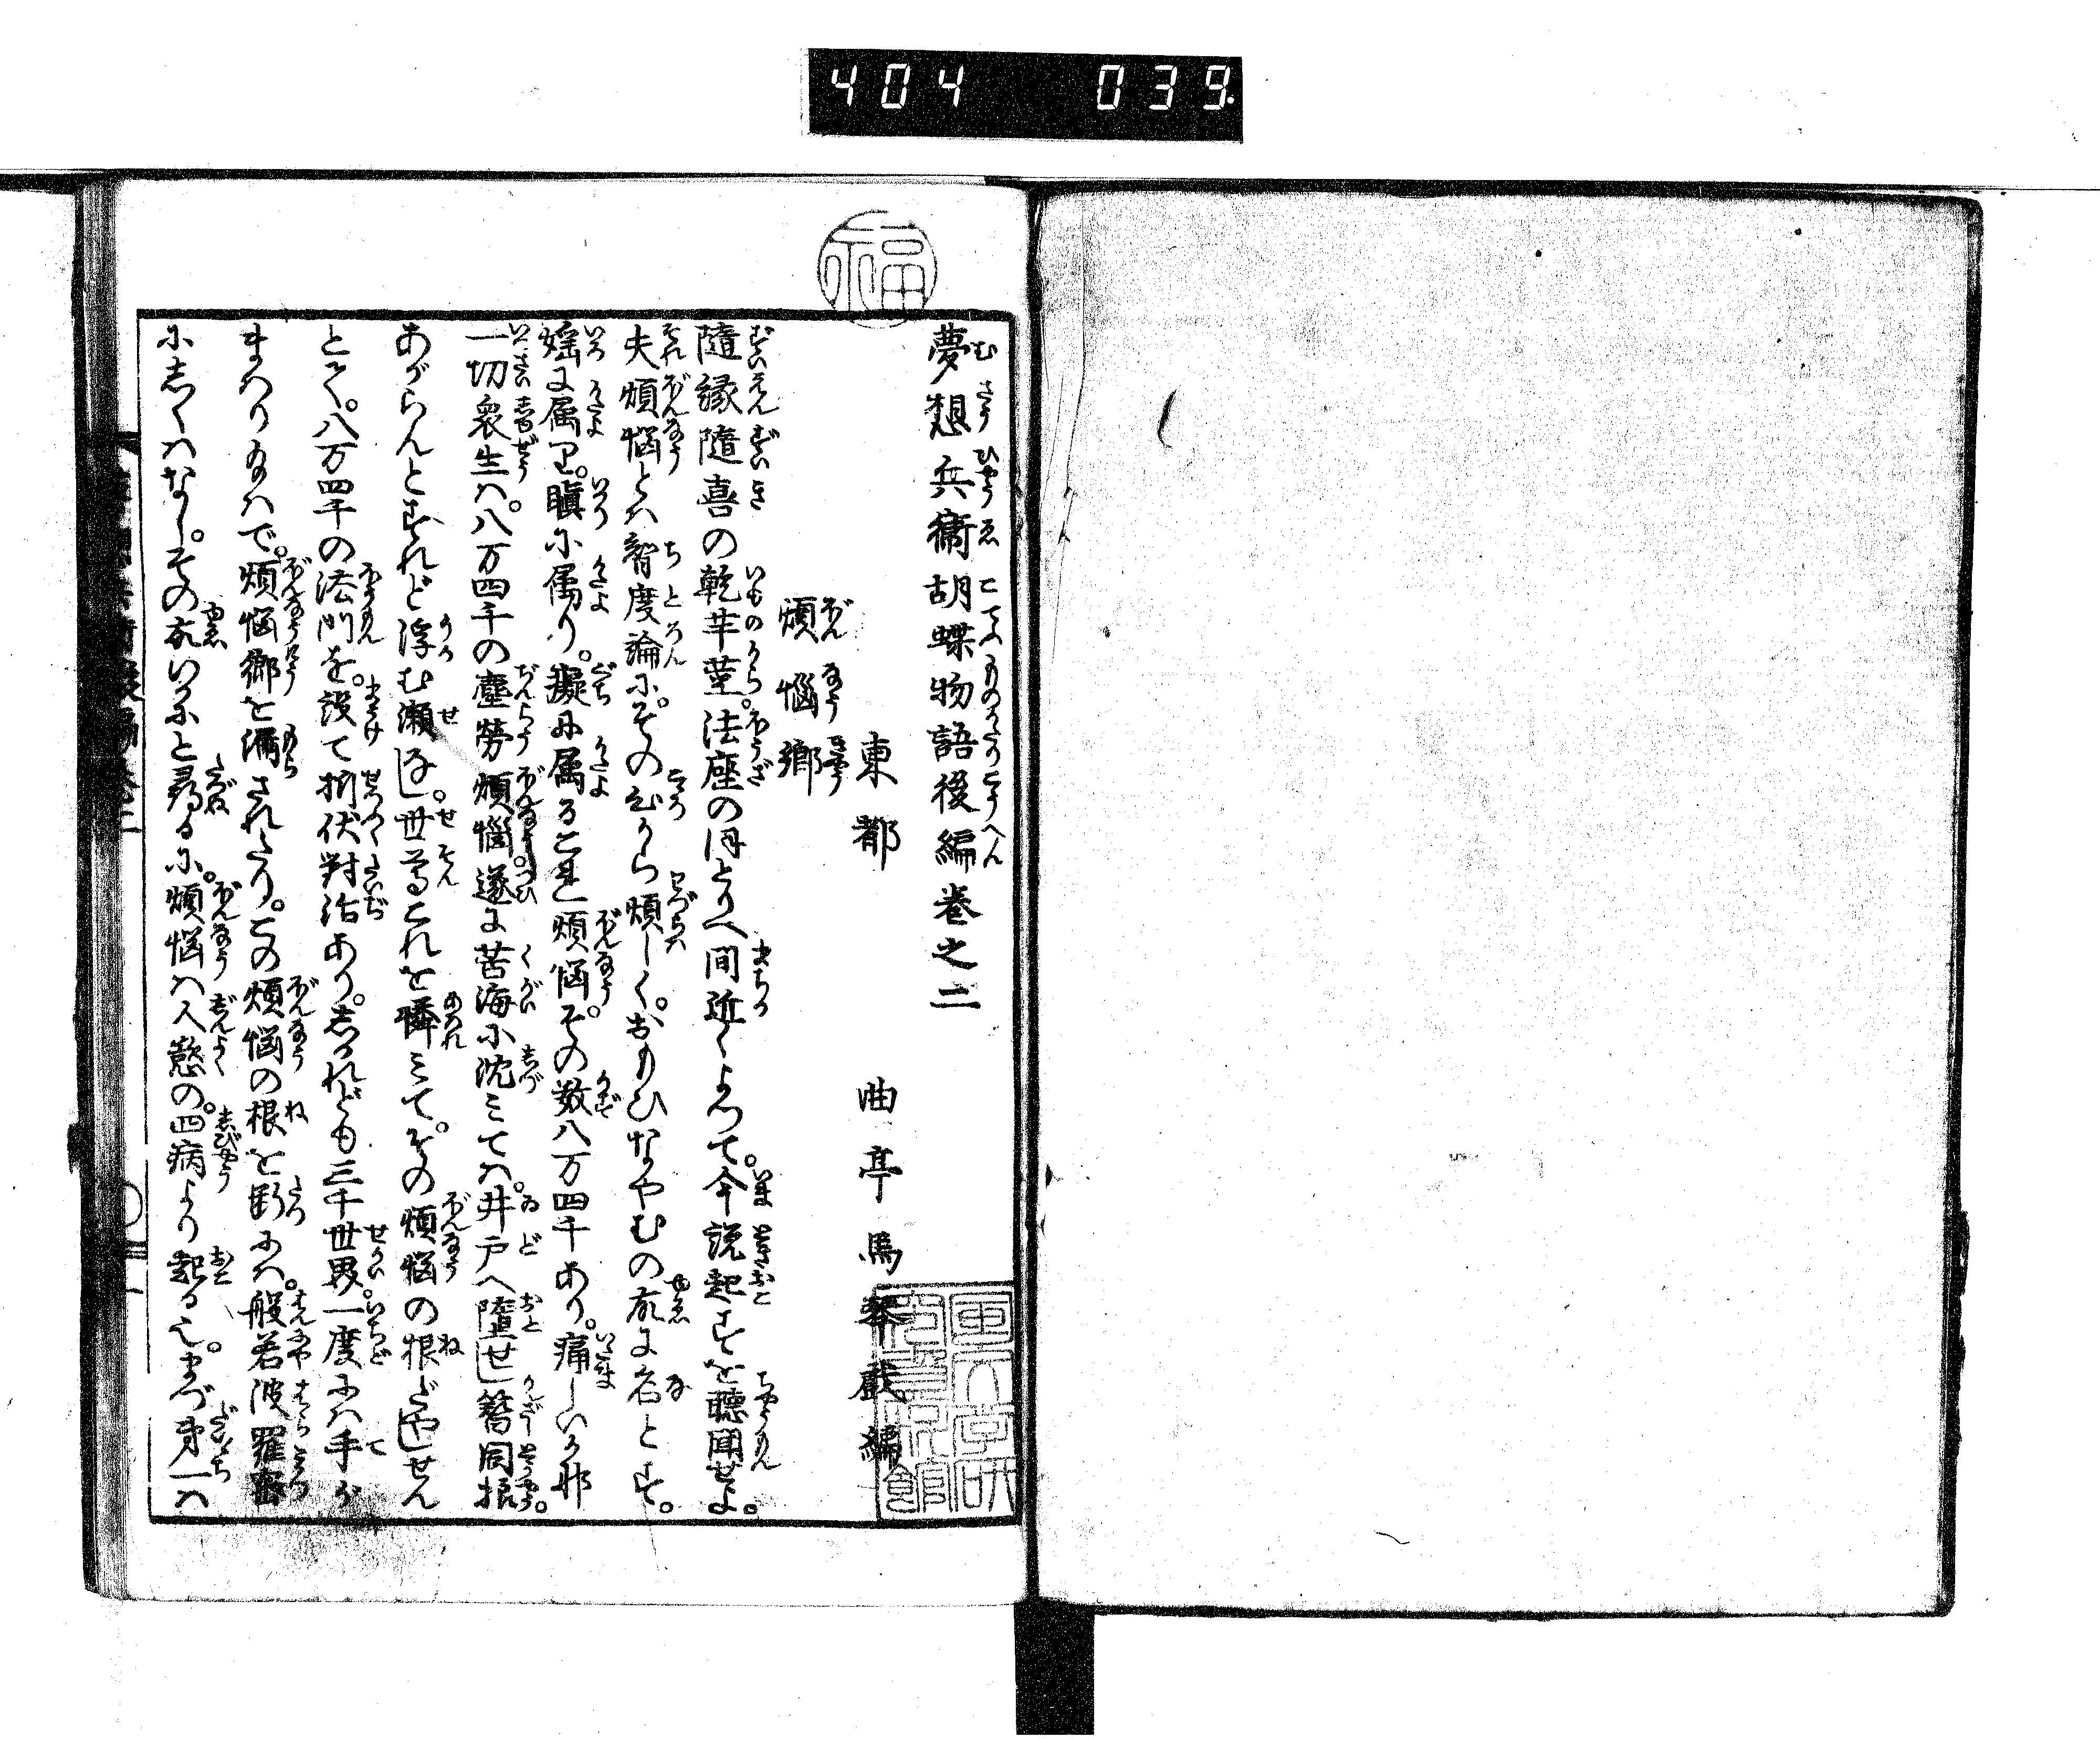 404 039
夢想兵衛胡蝶物語後編巻之二
東都 曲亭馬琴戯編
煩悩郷
隨縁隨喜の乾芋莖。法座のほとりへ間近くよつて。今説起すを聴聞せよ。
夫煩悩とハ智度論に。その心から煩しく。おもひなやむの故に名とす。
婬に属り。瞋に属り。癡に属るこれ煩悩。その数八万四千あり。痛しいかな
一切衆生ハ。八万四千の塵勞煩惱。遂に苦海に沈ミてハ。井戸へ墮せし簪同然。
あがらんとすれど浮む瀬なし。世尊これを憐ミて。その煩悩の根だやしせん
とて。八万四千の法門を。設て折伏対治あり。しかれども三千世界。一度にハ手が
まハりかねハで。煩悩郷を漏されたり。この煩悩の根を断にハ。般若波羅蜜
にしくハなし。その故いかにと尋るに。煩悩ハ人慾の。四病より起る也。まづ第一ハ